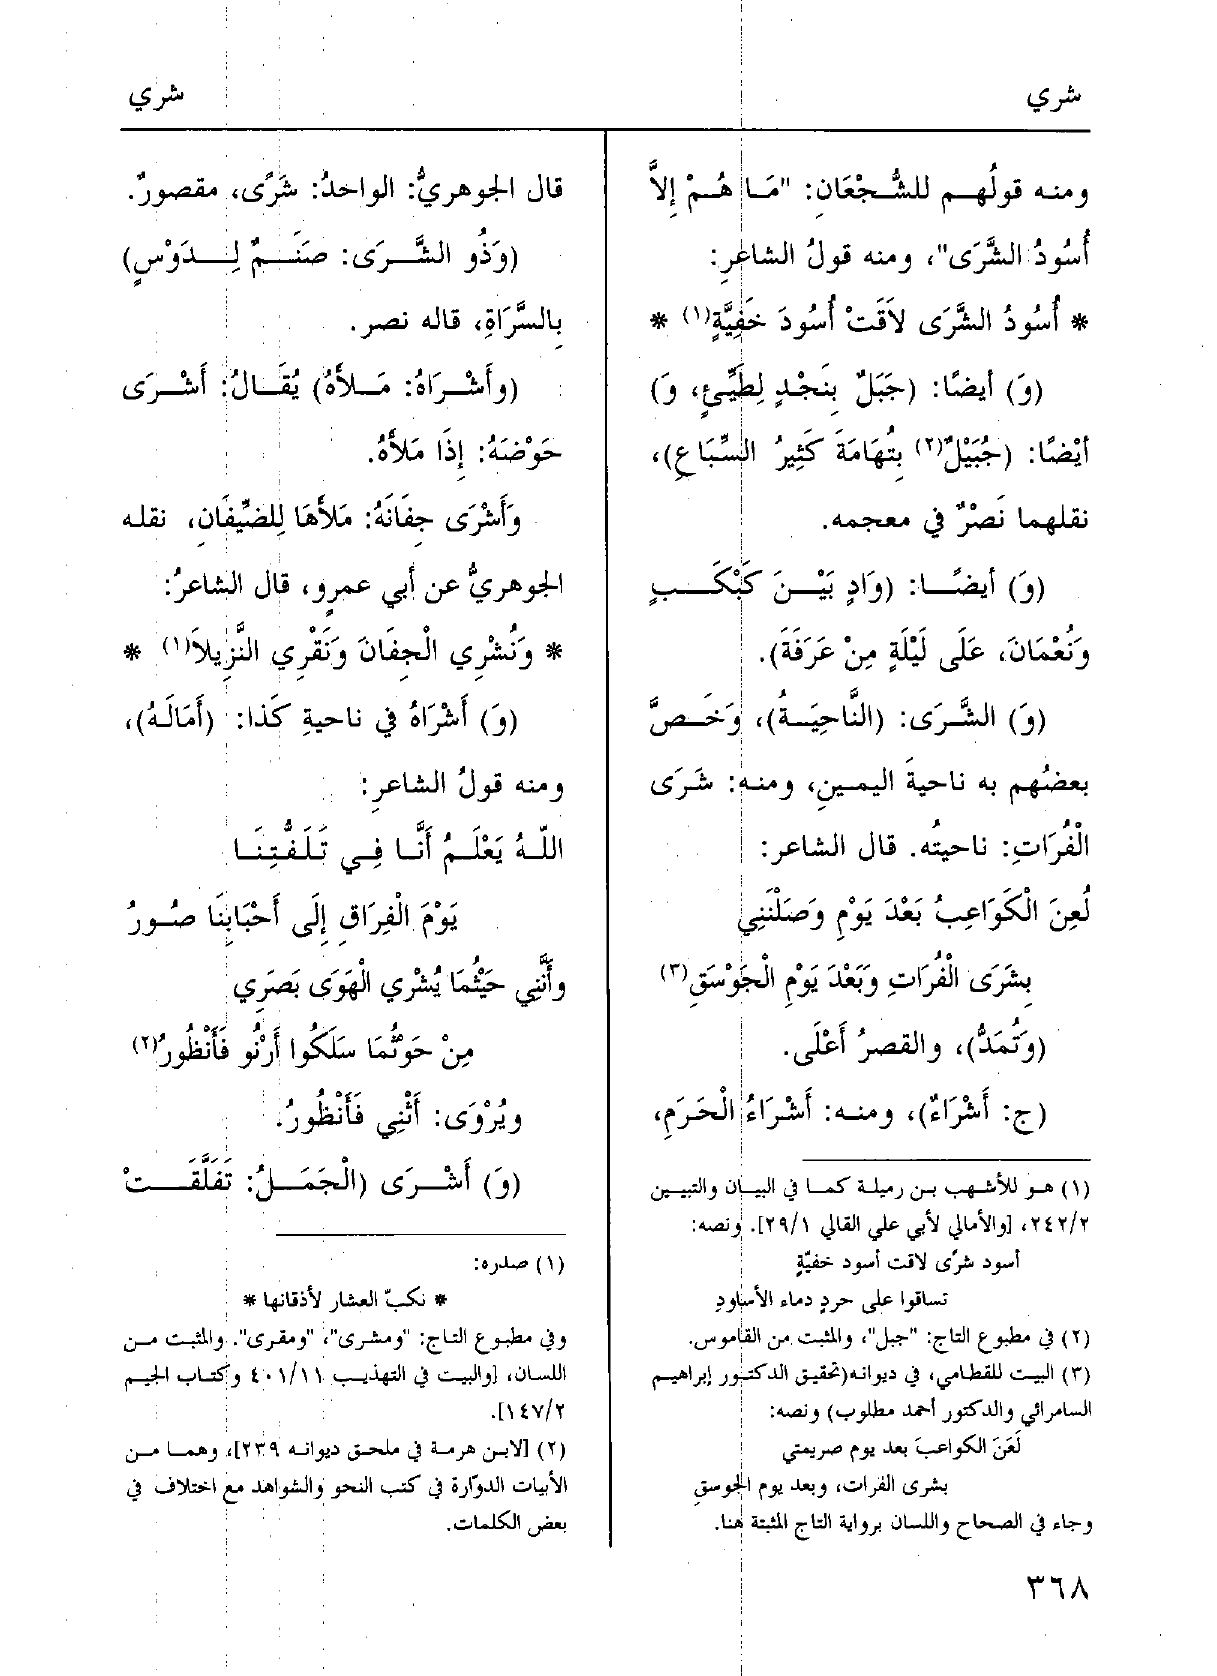 شري
شري
ومنه قولُهم للشُّجْعَانِ: "مَا هُمْ إِلاَّ
أُسُودُ الشَّرَى"، ومنه قولُ الشاعرِ:
* أُسُودُ الشَّرَى لاَقَتْ أُسُودَ خَفِيَّةٍ(١) *
(وَ) أيضًا: (جَبَلٌ بِنَجْدٍ لِطَيِّئٍ، وَ)
أيْضًا: (جُبَيْلٌ(٢) بِتُهَامَةَ كَثِيرُ السِّبَاعِ)،
نقلهما نَصْرٌ في معجمه.
(وَ) أيضًا: (وَادٍ بَيْنَ كَبْكَبٍ
وَنُعْمَانَ، عَلَى لَيْلَةٍ مِنْ عَرَفَةَ).
(وَ) الشَّرَى: (النَّاحِيَةُ)، وَخَصَّ
بعضُهم به ناحيةَ اليمينِ، ومنه: شَرَى
الْفُرَاتِ: ناحيتُه. قال الشاعر:
لُعِنَ الْكَوَاعِبُ بَعْدَ يَوْمِ وَصَلْنَنِي
بِشَرَى الْفُرَاتِ وَبَعْدَ يَوْمِ الْجَوْسَقِ(٣)
(وَتُمَدُّ)، والقصرُ أَعْلَى.
(ج: أَشْرَاءٌ)، ومنه: أَشْرَاءُ الْحَرَمِ،
(١) هو للأشهب بن رميلة كما في البيان والتبيين
٢٤٢/٢، [والأمالي لأبي علي القالي ٢٩/١]. ونصه:
أسود شرًى لاقت أسود خفيّةٍ
تساقوا على حردٍ دماء الأساودِ
(٢) في مطبوع التاج: "جبل"، والمثبت من القاموس.
(٣) البيت للقطامي، في ديوانه (تحقيق الدكتور إبراهيم
السامرائي والدكتور أحمد مطلوب) ونصه:
لَعَنَ الكواعبَ بعد يوم صريمتي
بشرى الفرات، وبعد يوم الجوسقِ
وجاء في الصحاح واللسان برواية التاج المثبتة هنا.
قال الجوهريُّ: الواحدُ: شَرًى، مقصورٌ.
(وَذُو الشَّرَى: صَنَمٌ لِدَوْسٍ)
بِالسَّرَاةِ، قاله نصر.
(وأَشْرَاهُ: مَلأَهُ) يُقَالُ: أَشْرَى
حَوْضَهُ: إِذَا مَلأَهُ.
وَأَشْرَى جِفَانَهُ: مَلأَهَا لِلضِّيفَانِ، نقله
الجوهريُّ عن أبي عمرٍو، قال الشاعرُ:
* وَنُشْرِي الْجِفَانَ وَنَقْرِي النَّزِيلاَ(١) *
(وَ) أَشْرَاهُ في ناحيةِ كَذا: (أَمَالَهُ)،
ومنه قولُ الشاعرِ:
اللّهُ يَعْلَمُ أَنَّا فِي تَلَفُّتِنَا
يَوْمَ الْفِرَاقِ إِلَى أَحْبَابِنَا صُورُ
وأَنَّنِي حَيْثُمَا يُشْرِي الْهَوَى بَصَرِي
مِنْ حَوْثُمَا سَلَكُوا أَرْنُو فَأَنْظُورُ(٢)
ويُرْوَى: أَثْنِي فَأَنْظُورُ.
(وَ) أَشْرَى (الْجَمَلُ: تَفَلَّقَتْ
(١) صدره:
* نكبّ العشار لأذقانها *
وفي مطبوع التاج: "ومشرى"، "ومقرى". والمثبت من
اللسان، [والبيت في التهذيب ٤٠١/١١ وكتاب الجيم
١٤٧/٢].
(٢) [لابن هرمة في ملحق ديوانه ٢٣٩]، وهما من
الأبيات الدوّارة في كتب النحو والشواهد مع اختلاف في
بعض الكلمات.
٣٦٨